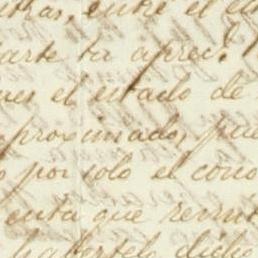 entre el
parte ta apreci
es el estado de
proximado, pue
por solo el cono
enta que revin
habertelo dicho